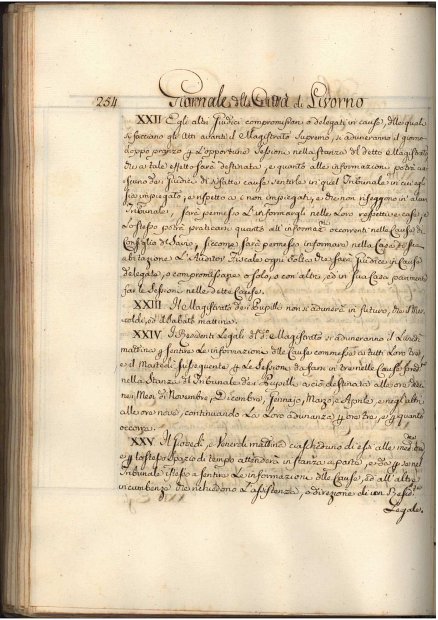 254 Giornale della Città di Livorno
XXII E gli altri Giudici compromissari o delegati in cause, delle quali
si facciano gli Atti avanti il Magistrato Supremo, si aduneranno il giorno
doppo pranzo p. l'opportune Sessioni nella stanza del detto Magistrato
che a tale effetto sarà destinata, e quanto alle informazioni potrà cia
scuno dei Giudici di d.e fatte cause sentirle in quel Tribunale in cui egli
sia impiegato, e rispetto ai non impiegati, e che non riseggono in alcun
Tribunale, sarà permesso l'informargli nelle loro respettive case, e
lo stesso potrà praticarsi quanto all' informaz.ni occorrenti nelle Cause di
Consiglio di Savio, siccome sarà permesso informare nella Casa di sua
abitazione l'Auditor Fiscale ogni volta che sarà Giudice in Cause
delegate, o compromissarie o solo, o con altri, ed in sua Casa parimente
far le Sessioni nelle dette Cause.
XXIII Il Magistrato dei Pupilli non si adunerà in futuro, che il Mer-
coledì, ed il Sabato mattina.
XXIV I Residenti Legali di d.o Magistrato si aduneranno il Lunedì
mattina p. sentire le informazioni delle Cause commesse a tutti Loro tre,
e il Martedì susseguente p. le Sessioni da farsi in tre nelle Cause sud.e
nella Stanza del Tribunale dei Pupilli a ciò destinata alle ore dieci
nei Mesi di Novembre, Dicembre, Gennajo, Marzo, e Aprile, e negli altri
alle ore nove, continuando la loro adunanza p. ore tre, e p. quanto
occorra.
XXV Il Giovedì, e Venerdì mattina ciascheduno di essi alle med.me ore
e p. lo stesso spazio di tempo attenderà in stanza a parte, e da se nel
Tribunale istesso a sentire le informazioni delle Cause, ed all' altre
incumbenze che richiedono l'assistenza, o direzione di un Resid.te
Legale.